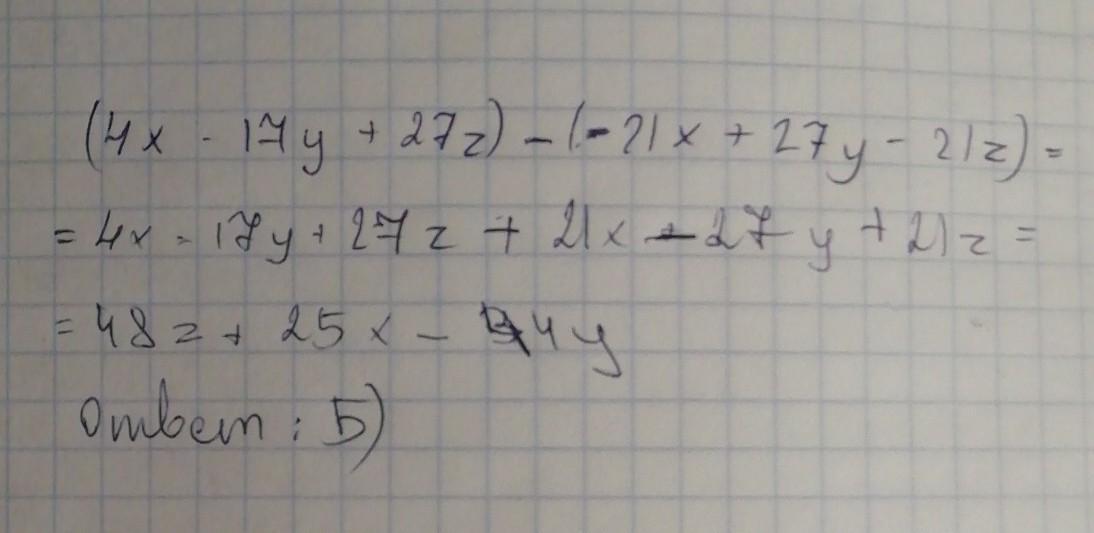 (4x - 17y + 27z) - (-21x + 27y - 21z) =
= 4x - 17y + 27z + 21x - 27y + 21z =
= 48z + 25x - 44y
Ответ: Б)